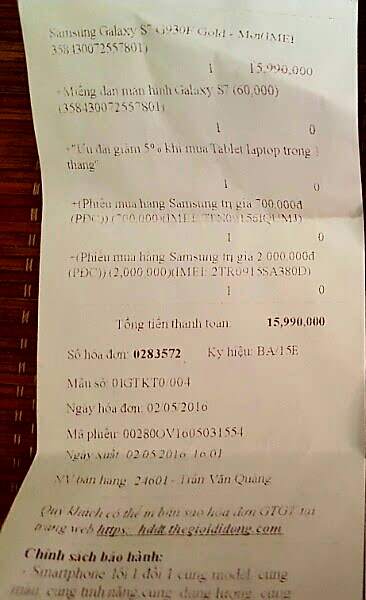 Samsung Galaxy S7 G930F Gold - Mới(IMEI
358430072557801)
1 15,990,000
+Miếng dán màn hình Galaxy S7 (60,000)
(358430072557801)
1 0
+"Ưu đãi giảm 5% khi mua Tablet laptop trong 1
tháng"
1 0
+(Phiếu mua hàng Samsung trị giá 700.000đ
(PĐC)) (700,000)(IMEI:
1 0
+(Phiếu mua hàng Samsung trị giá 2.000.000đ
(PĐC)) (2,000,000)(IMEI: 2TR0915SA380D)
1 0
Tổng tiền thanh toán: 15,990,000
Số hóa đơn: 0283572 Ký hiệu: BA/15E
Mẫu số: 01GTKT0/004
Ngày hóa đơn: 02/05/2016
Mã phiếu: 00280OV1605031554
Ngày xuất: 02/05/2016 16:01
NV bán hàng: 24601 - Trần Văn Quảng
Quý khách có thể in bản sao hóa đơn GTGT tại
trang web https: hddt.thegioididong.com
Chính sách bảo hành:
- Smartphone: lỗi 1 đổi 1 cùng model, cùng
màu, cùng tính năng, cùng dung lượng, cùng